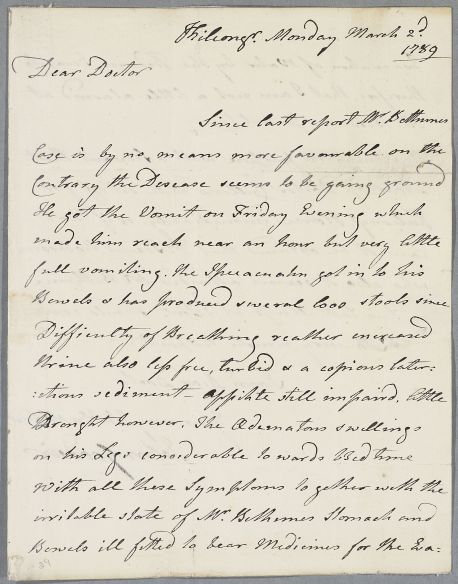 Kilcongr. Monday March 2d.
1789
Dear Doctor
Since last report Mr. Bethunes
Case is by no means more favourable on the
Contrary the Desease seems to be going ground
He got the Vomit on Friday Evening which
made him reach near an hour but very little
full vomiting. the Ipecacuahn got in to his
Bowels & has produced several loos stools since
Difficulty of Breathing reather increased
Urine also less free, turbid & a copious later:
:itions sediment - appitite still impaird. little
Drought however. The Ædematous swellings
on his Legs considerable towards Bedtime
With all these Symptoms together with the
irritable state of Mr. Bethunes Stomach and
Bowels ill fitted to bear Medicines for the Eva:
39